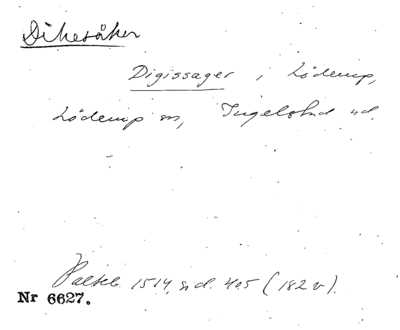 Dikesåker
Digissager, Löderup,
Löderup sn, Ingelstad hd.
Palteb. 1514, sid. 405 (182 v).
Nr 6627.